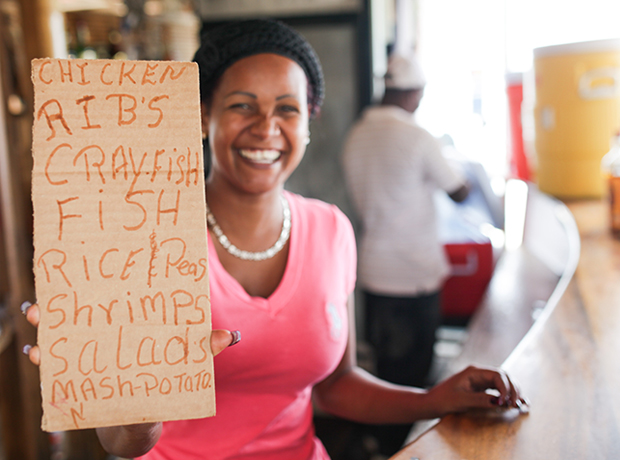 CHICKEN
RIB'S
CRAY-FISH
FISH
RICE & Peas
Shrimps
Salads
MASH-POTATO.
N